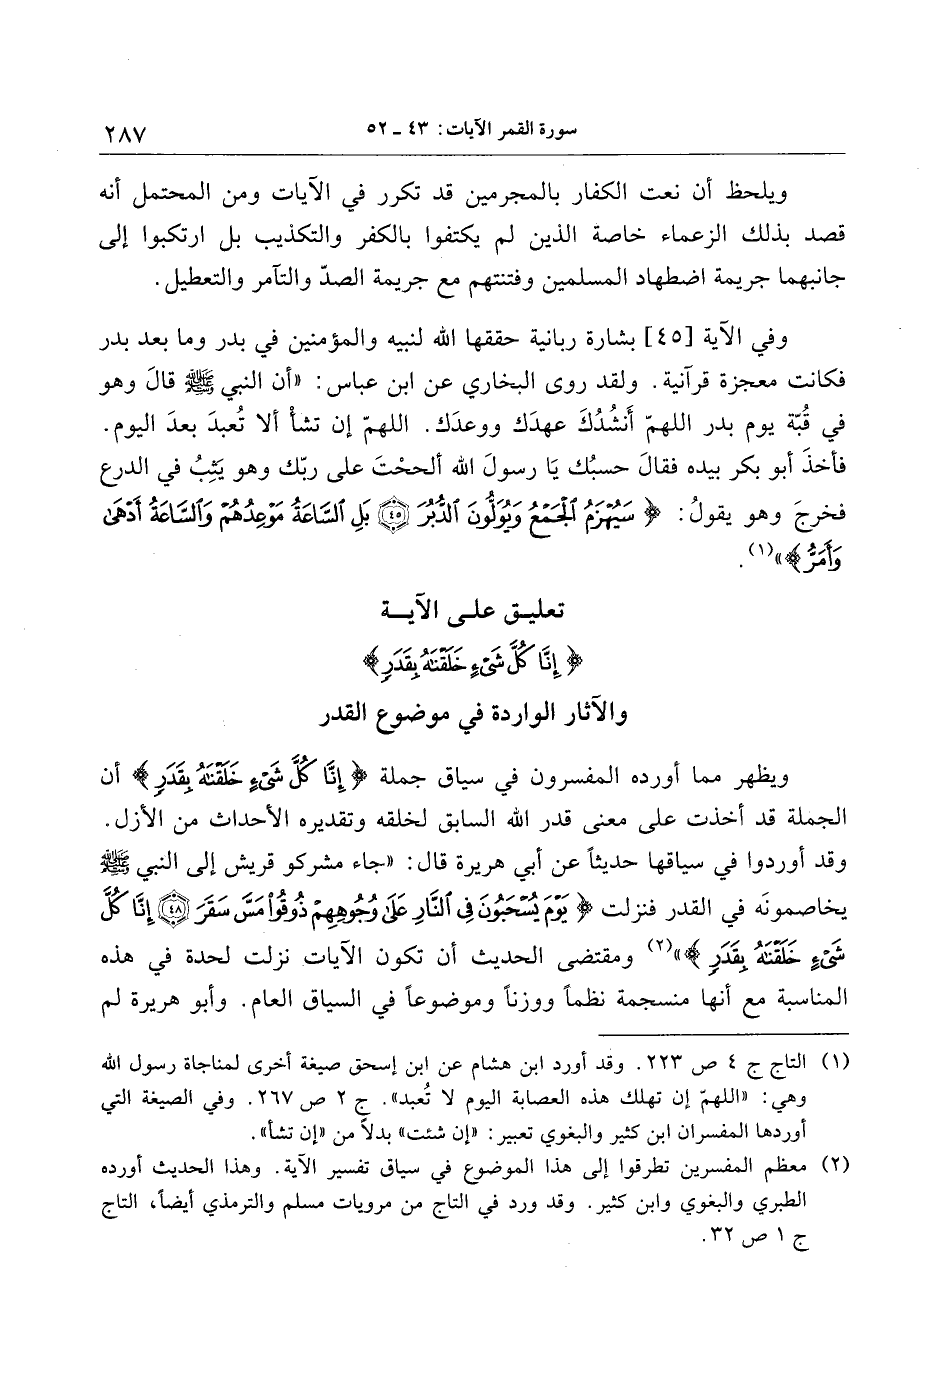 سورة القمر الآيات: ٤٣ ـ ٥٢
٢٨٧
ويلحظ أن نعت الكفار بالمجرمين قد تكرر في الآيات ومن المحتمل أنه
قصد بذلك الزعماء خاصة الذين لم يكتفوا بالكفر والتكذيب بل ارتكبوا إلى
جانبهما جريمة اضطهاد المسلمين وفتنتهم مع جريمة الصدّ والتآمر والتعطيل.
وفي الآية [٤٥] بشارة ربانية حققها الله لنبيه والمؤمنين في بدر وما بعد بدر
فكانت معجزة قرآنية. ولقد روى البخاري عن ابن عباس: «أن النبي ﷺ قالَ وهو
في قُبّة يوم بدر اللهمّ أَنشُدُكَ عهدَك ووعدَك. اللهمّ إن تشأْ ألا تُعبدَ بعدَ اليوم.
فأخذَ أبو بكر بيده فقالَ حسبُك يَا رسولَ الله ألححْتَ على ربّك وهو يَثِبُ في الدرع
فخرجَ وهو يقولُ: ﴿ سَيُهْزَمُ ٱلْجَمْعُ وَيُوَلُّونَ ٱلدُّبُرَ ٤٥ بَلِ ٱلسَّاعَةُ مَوْعِدُهُمْ وَٱلسَّاعَةُ أَدْهَىٰ
وَأَمَرُّ ﴾»(١).
تعليـق علـى الآيـة
﴿ إِنَّا كُلَّ شَىْءٍ خَلَقْنَٰهُ بِقَدَرٍ ﴾
والآثار الواردة في موضوع القدر
ويظهر مما أورده المفسرون في سياق جملة ﴿ إِنَّا كُلَّ شَىْءٍ خَلَقْنَٰهُ بِقَدَرٍ ﴾ أن
الجملة قد أخذت على معنى قدر الله السابق لخلقه وتقديره الأحداث من الأزل.
وقد أوردوا في سياقها حديثاً عن أبي هريرة قال: «جاء مشركو قريش إلى النبي ﷺ
يخاصمونَه في القدر فنزلت ﴿ يَوْمَ يُسْحَبُونَ فِى ٱلنَّارِ عَلَىٰ وُجُوهِهِمْ ذُوقُوا۟ مَسَّ سَقَرَ ٤٨ إِنَّا كُلَّ
شَىْءٍ خَلَقْنَٰهُ بِقَدَرٍ ﴾»(٢) ومقتضى الحديث أن تكون الآيات نزلت لحدة في هذه
المناسبة مع أنها منسجمة نظماً ووزناً وموضوعاً في السياق العام. وأبو هريرة لم
(١) التاج ج ٤ ص ٢٢٣. وقد أورد ابن هشام عن ابن إسحق صيغة أخرى لمناجاة رسول الله
وهي: «اللهمّ إن تهلك هذه العصابة اليوم لا تُعبد». ج ٢ ص ٢٦٧. وفي الصيغة التي
أوردها المفسران ابن كثير والبغوي تعبير: «إن شئت» بدلاً من «إن تشأ».
(٢) معظم المفسرين تطرقوا إلى هذا الموضوع في سياق تفسير الآية. وهذا الحديث أورده
الطبري والبغوي وابن كثير. وقد ورد في التاج من مرويات مسلم والترمذي أيضاً، التاج
ج ١ ص ٣٢.